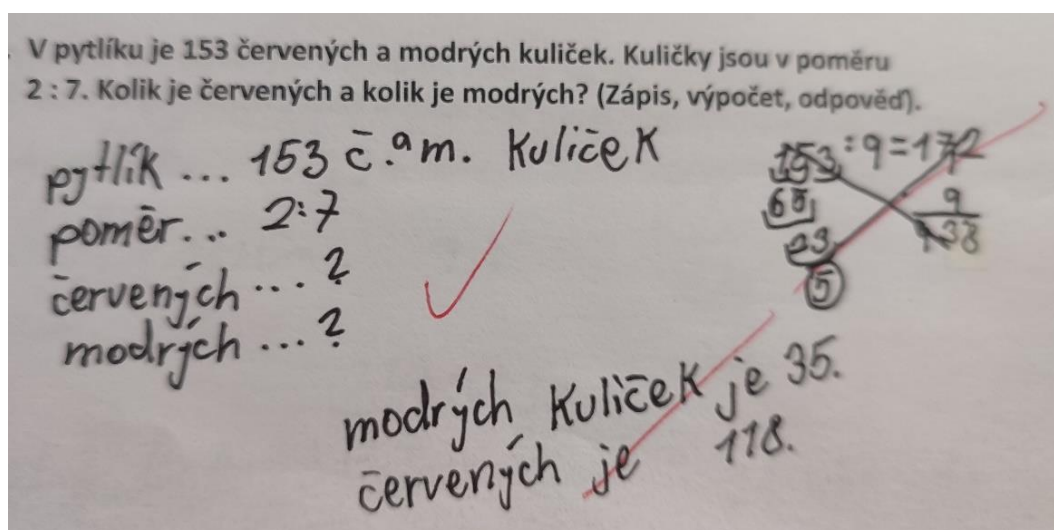 V pytlíku je 153 červených a modrých kuliček. Kuličky jsou v poměru
2 : 7. Kolik je červených a kolik je modrých? (Zápis, výpočet, odpověď).
pytlík ... 153 č. a m. kuliček
poměr... 2:7
červených ... ?
modrých ... ?
153 : 9 = 172
65
23
5
9
modrých kuliček je 35.
červených je 118.